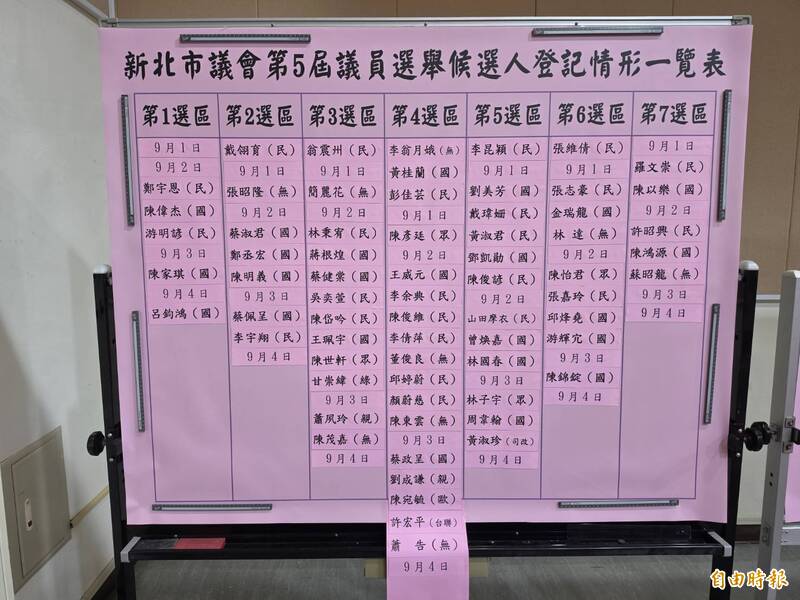 新北市議會第5屆議員選舉候選人登記情形一覽表
第1選區
9月1日
9月2日
鄭宇恩（民）
陳偉杰（國）
游明諺（民）
9月3日
陳家琪（國）
9月4日
呂鈞鴻（國）
第2選區
戴翎育（民）
9月1日
張昭隆（無）
9月2日
蔡淑君（國）
鄭丞宏（國）
陳明義（國）
9月3日
蔡佩呈（國）
李宇翔（民）
9月4日
第3選區
翁震州（民）
9月1日
簡麗花（無）
9月2日
林秉宥（民）
蔣根煌（國）
蔡健棠（國）
吳奕萱（民）
陳岱吟（民）
王珮宇（國）
陳世軒（眾）
甘崇緯（綠）
9月3日
蕭夙玲（親）
陳茂嘉（無）
9月4日
第4選區
李翁月娥（無）
黃桂蘭（國）
彭佳芸（民）
9月1日
陳彥廷（眾）
9月2日
王威元（國）
李余典（民）
陳俊維（民）
李倩萍（民）
董俊良（無）
邱婷蔚（民）
顏蔚慈（民）
陳東雲（無）
9月3日
蔡政呈（國）
劉成謙（親）
陳宛毓（歐）
許宏平（台聯）
蕭　告（無）
9月4日
第5選區
李昆穎（民）
9月1日
劉美芳（國）
戴瑋姍（民）
黃淑君（民）
鄧凱勛（國）
陳俊諺（民）
9月2日
山田摩衣（民）
曾煥嘉（國）
林國春（國）
9月3日
林子宇（眾）
周韋翰（國）
黃淑珍（司改）
9月4日
第6選區
張維倩（民）
9月1日
張志豪（民）
金瑞龍（國）
林　達（無）
9月2日
陳怡君（眾）
張嘉玲（民）
邱烽堯（國）
游輝宂（國）
9月3日
陳錦錠（國）
9月4日
第7選區
9月1日
羅文崇（民）
陳以樂（國）
9月2日
許昭興（民）
陳鴻源（國）
蘇昭龍（無）
9月3日
9月4日
自由時報